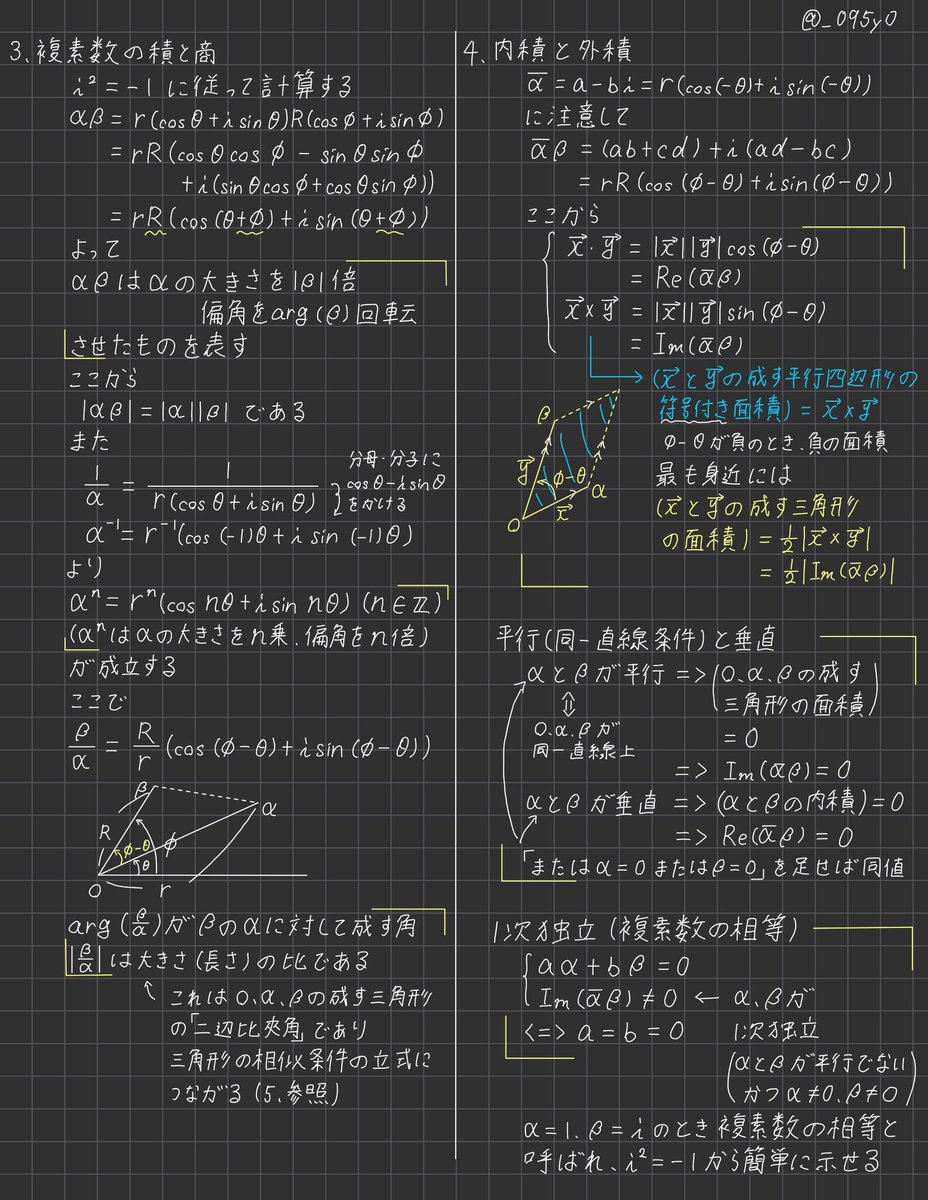 @_095y0
3、複素数の積と商
i²=-1に従って計算する
αβ=r(cosθ+isinθ)R(cosφ+isinφ)
=rR(cosθcosφ-sinθsinφ
+i(sinθcosφ+cosθsinφ))
=rR(cos(θ+φ)+isin(θ+φ))
よって
αβはαの大きさを|β|倍
偏角をarg(β)回転
させたものを表す
ここから
|αβ|=|α||β|である
また
1/α = 1/r(cosθ+isinθ)
分母・分子に
cosθ-isinθ
をかける
α⁻¹=r⁻¹(cos(-1)θ+isin(-1)θ)
より
αⁿ=rⁿ(cosnθ+isinnθ)(n∈ℤ)
(αⁿはαの大きさをn乗、偏角をn倍)
が成立する
ここで
β/α = R/r (cos(φ-θ)+isin(φ-θ))
β
α
R
φ-θ
φ
θ
O
r
arg(β/α)がβのαに対して成す角
|β/α|は大きさ(長さ)の比である
これは0、α、βの成す三角形
の「二辺比夾角」であり
三角形の相似条件の立式に
つながる(5、参照)
4、内積と外積
ᾱ=a-bi=r(cos(-θ)+isin(-θ))
に注意して
ᾱβ=(ab+cd)+i(ad-bc)
=rR(cos(φ-θ)+isin(φ-θ))
ここから
x⃗・y⃗=|x⃗||y⃗|cos(φ-θ)
=Re(ᾱβ)
x⃗×y⃗=|x⃗||y⃗|sin(φ-θ)
=Im(ᾱβ)
→(x⃗とy⃗の成す平行四辺形の
符号付き面積)=x⃗×y⃗
φ-θが負のとき、負の面積
最も身近には
(x⃗とy⃗の成す三角形
の面積)=½|x⃗×y⃗|
=½|Im(ᾱβ)|
β
y⃗
φ-θ
α
x⃗
O
平行(同一直線条件)と垂直
αとβが平行=>(0、α、βの成す
三角形の面積)
⇕
0、α、βが
同一直線上
=0
=>Im(ᾱβ)=0
αとβが垂直=>(αとβの内積)=0
=>Re(ᾱβ)=0
「またはα=0またはβ=0」を足せば同値
1次独立(複素数の相等)
aα+bβ=0
Im(ᾱβ)≠0 ← α、βが
<=>a=b=0 1次独立
(αとβが平行でない
かつα≠0、β≠0)
α=1、β=iのとき複素数の相等と
呼ばれ、i²=-1から簡単に示せる